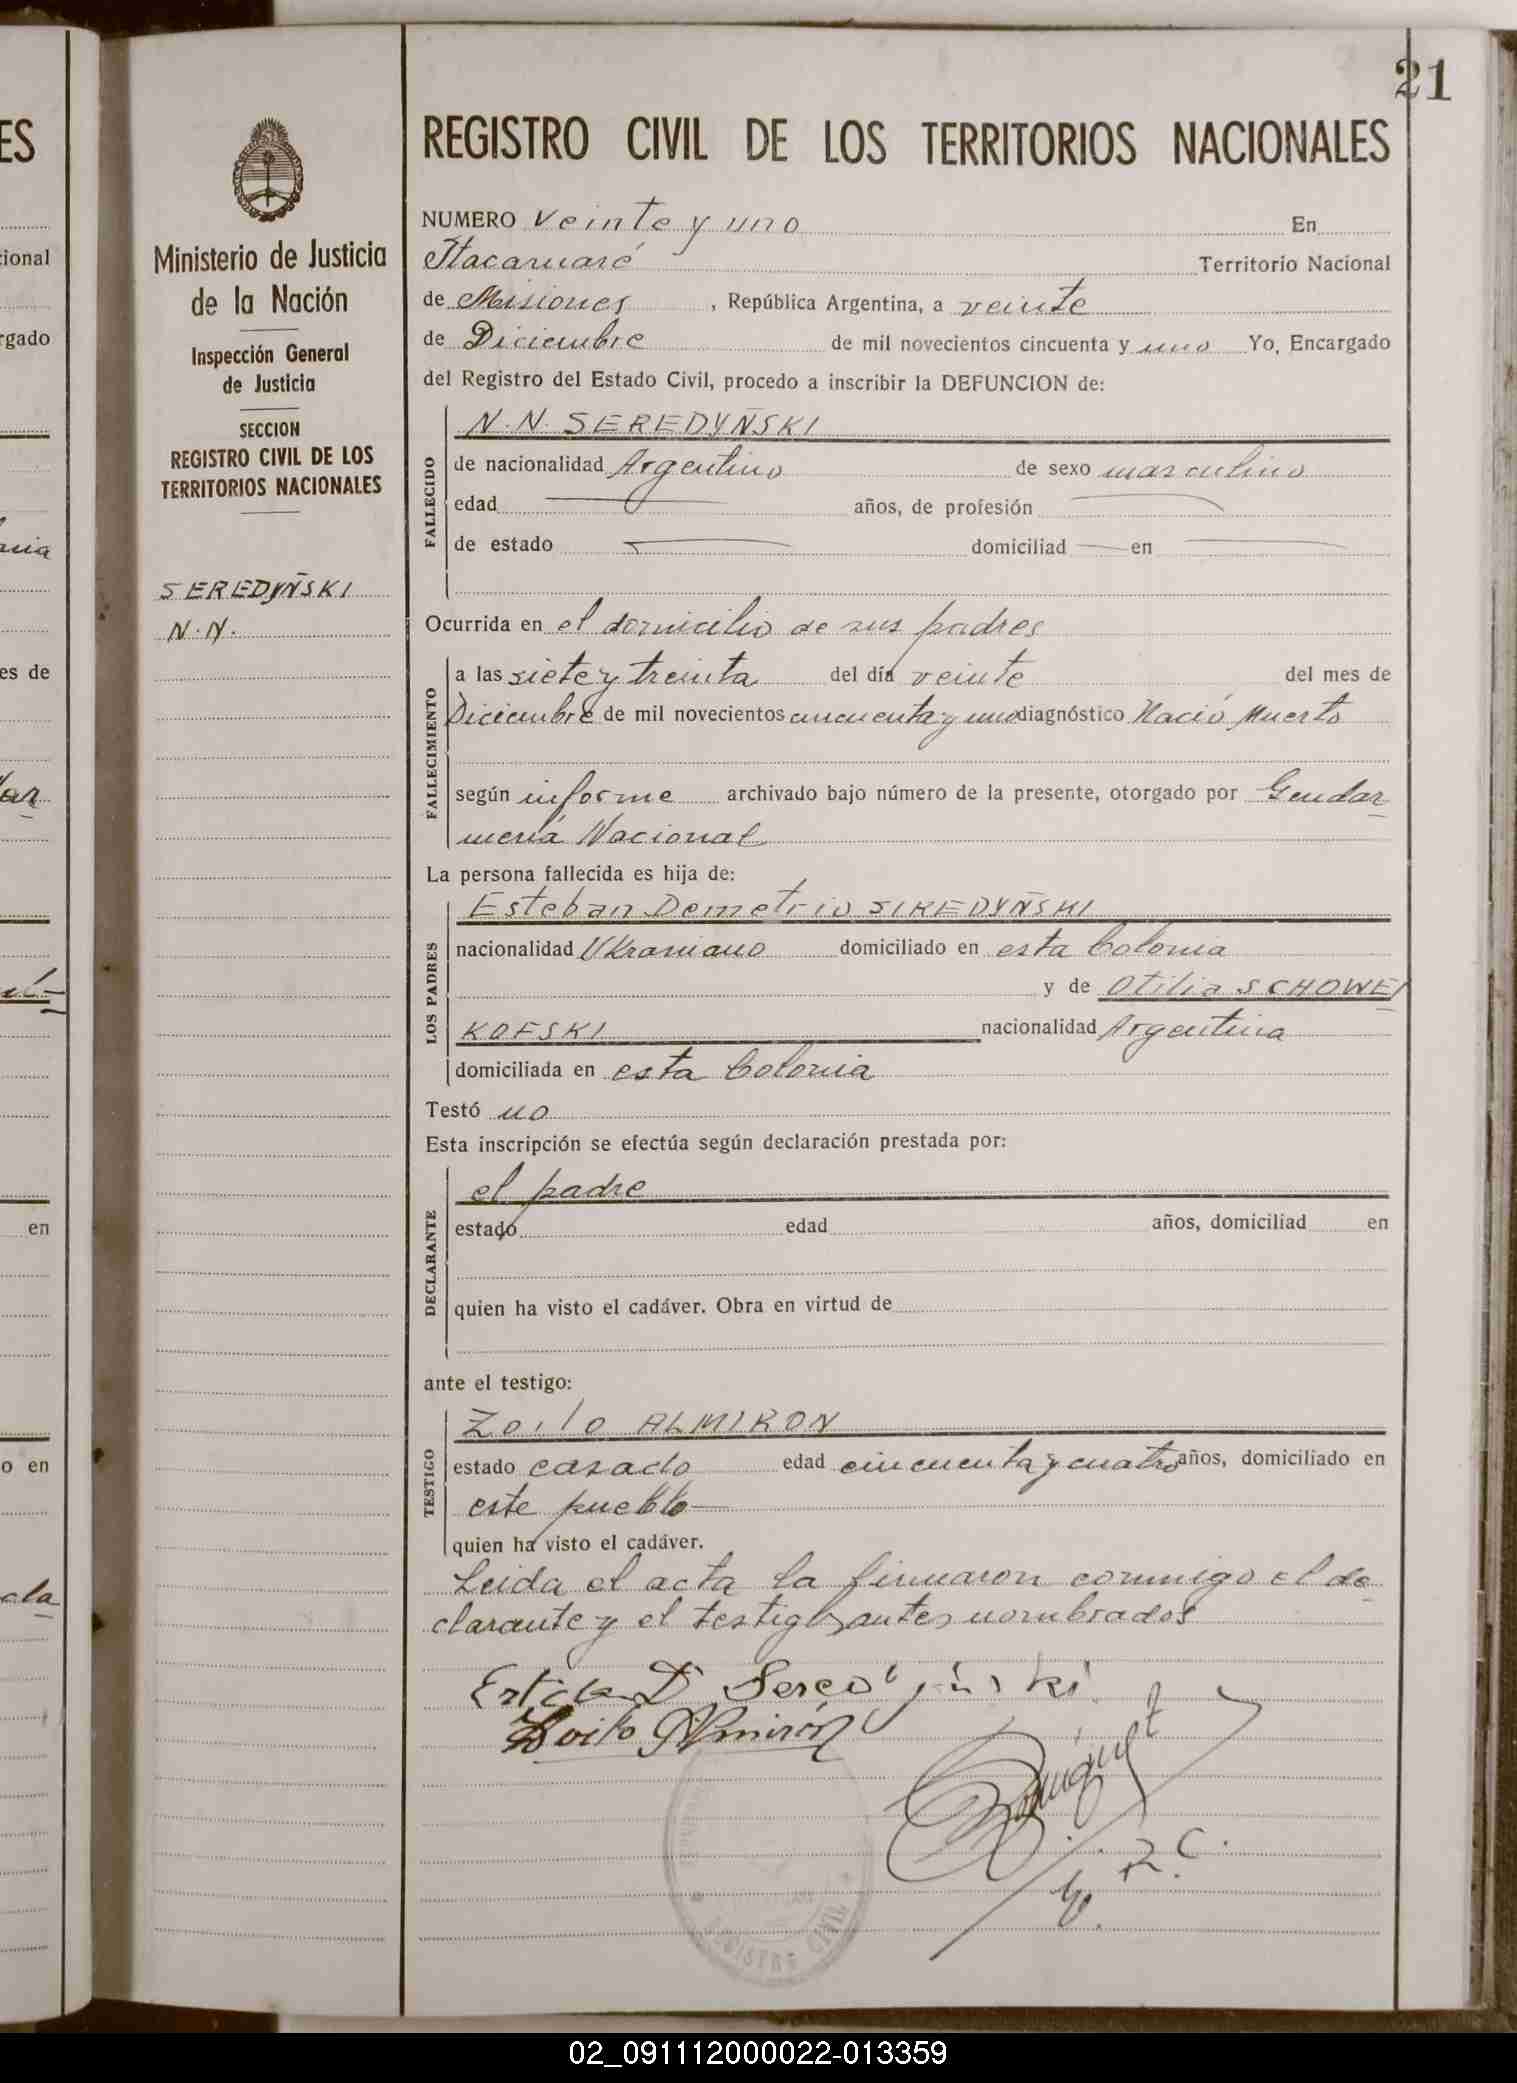 21
REGISTRO CIVIL DE LOS TERRITORIOS NACIONALES
Ministerio de Justicia
de la Nación
Inspección General
de Justicia
SECCION
REGISTRO CIVIL DE LOS
TERRITORIOS NACIONALES
SEREDYÑSKI
N.N.
NUMERO veinte y uno En
Itacaruaré Territorio Nacional
de Misiones, República Argentina, a veinte
de Diciembre de mil novecientos cincuenta y uno Yo, Encargado
del Registro del Estado Civil, procedo a inscribir la DEFUNCION de:
FALLECIDO
N.N. SEREDYÑSKI
de nacionalidad Argentino de sexo masculino
edad años, de profesión
de estado domiciliad en
Ocurrida en el domicilio de sus padres
FALLECIMIENTO
a las siete y treinta del día veinte del mes de
Diciembre de mil novecientos cincuenta y uno diagnóstico Nació Muerto
según informe archivado bajo número de la presente, otorgado por Gendar
mería Nacional
La persona fallecida es hija de:
LOS PADRES
Esteban Demetrio SIREDYÑSKI
nacionalidad Ukraniano domiciliado en esta Colonia
y de Otilia SCHOWE
KOFSKI nacionalidad Argentina
domiciliada en esta Colonia
Testó no
Esta inscripción se efectúa según declaración prestada por:
DECLARANTE
el padre
estado edad años, domiciliad en
quien ha visto el cadáver. Obra en virtud de
ante el testigo:
TESTIGO
Zoilo ALMIRON
estado casado edad cincuenta y cuatro años, domiciliado en
este pueblo
quien ha visto el cadáver.
Leida el acta la firmaron conmigo el de
clarante y el testigo antes nombrados
Zoilo Almirón
REGISTRO CIVIL
ES
cional
rgado
es de
en
o en
02_091112000022-013359